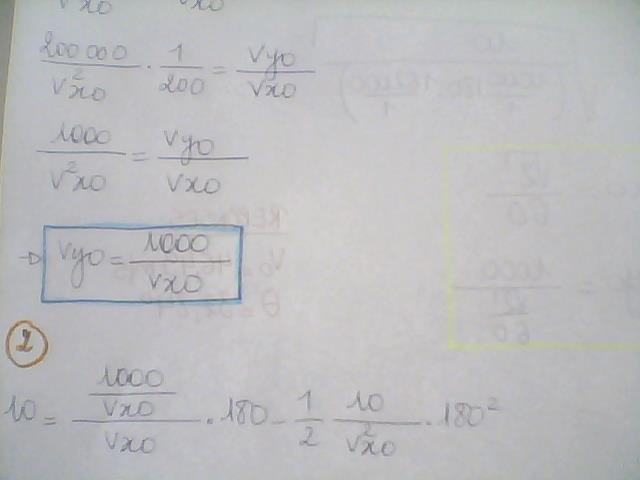 vx0 vx0
200000/v²x0 · 1/200 = vy0/vx0
1000/v²x0 = vy0/vx0
→ vy0 = 1000/vx0
2
10 = (1000/vx0)/vx0 · 180 - 1/2 10/v²x0 · 180²